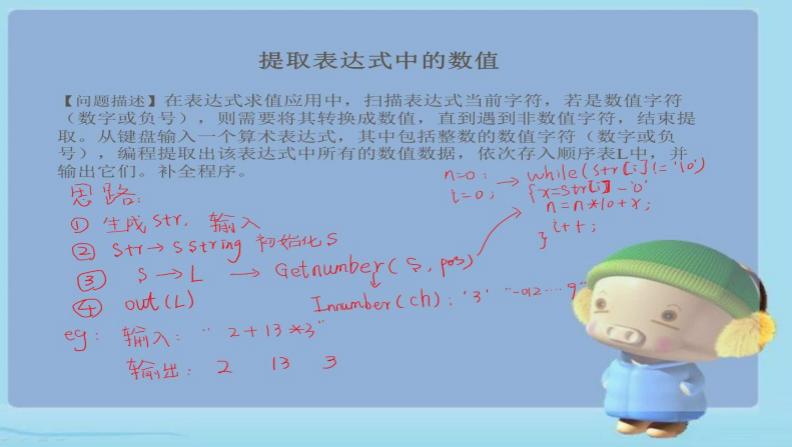 提取表达式中的数值
【问题描述】在表达式求值应用中，扫描表达式当前字符，若是数值字符
（数字或负号），则需要将其转换成数值，直到遇到非数值字符，结束提
取。从键盘输入一个算术表达式，其中包括整数的数值字符（数字或负
号），编程提取出该表达式中所有的数值数据，依次存入顺序表L中，并
输出它们。补全程序。
思路：
① 生成str. 输入
② str→Sstring 初始化S
③ S→L → Getnumber(S,pos)
Innumber(ch): '3' "-012....9"
④ out(L)
eg: 输入: "2+13*3"
输出: 2 13 3
n=0;
i=0;
→ while(str[i]!='\0')
{x=str[i]-'0'
n=n*10+x;
i++;
}